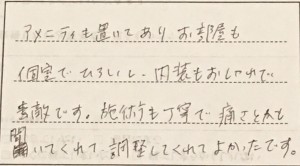 アメニティも置いてあり、お部屋も
個室でひろいし、内装もおしゃれで
素敵です。施術も丁寧で痛さとかも
聞いてくれて、調整してくれてよかったです。